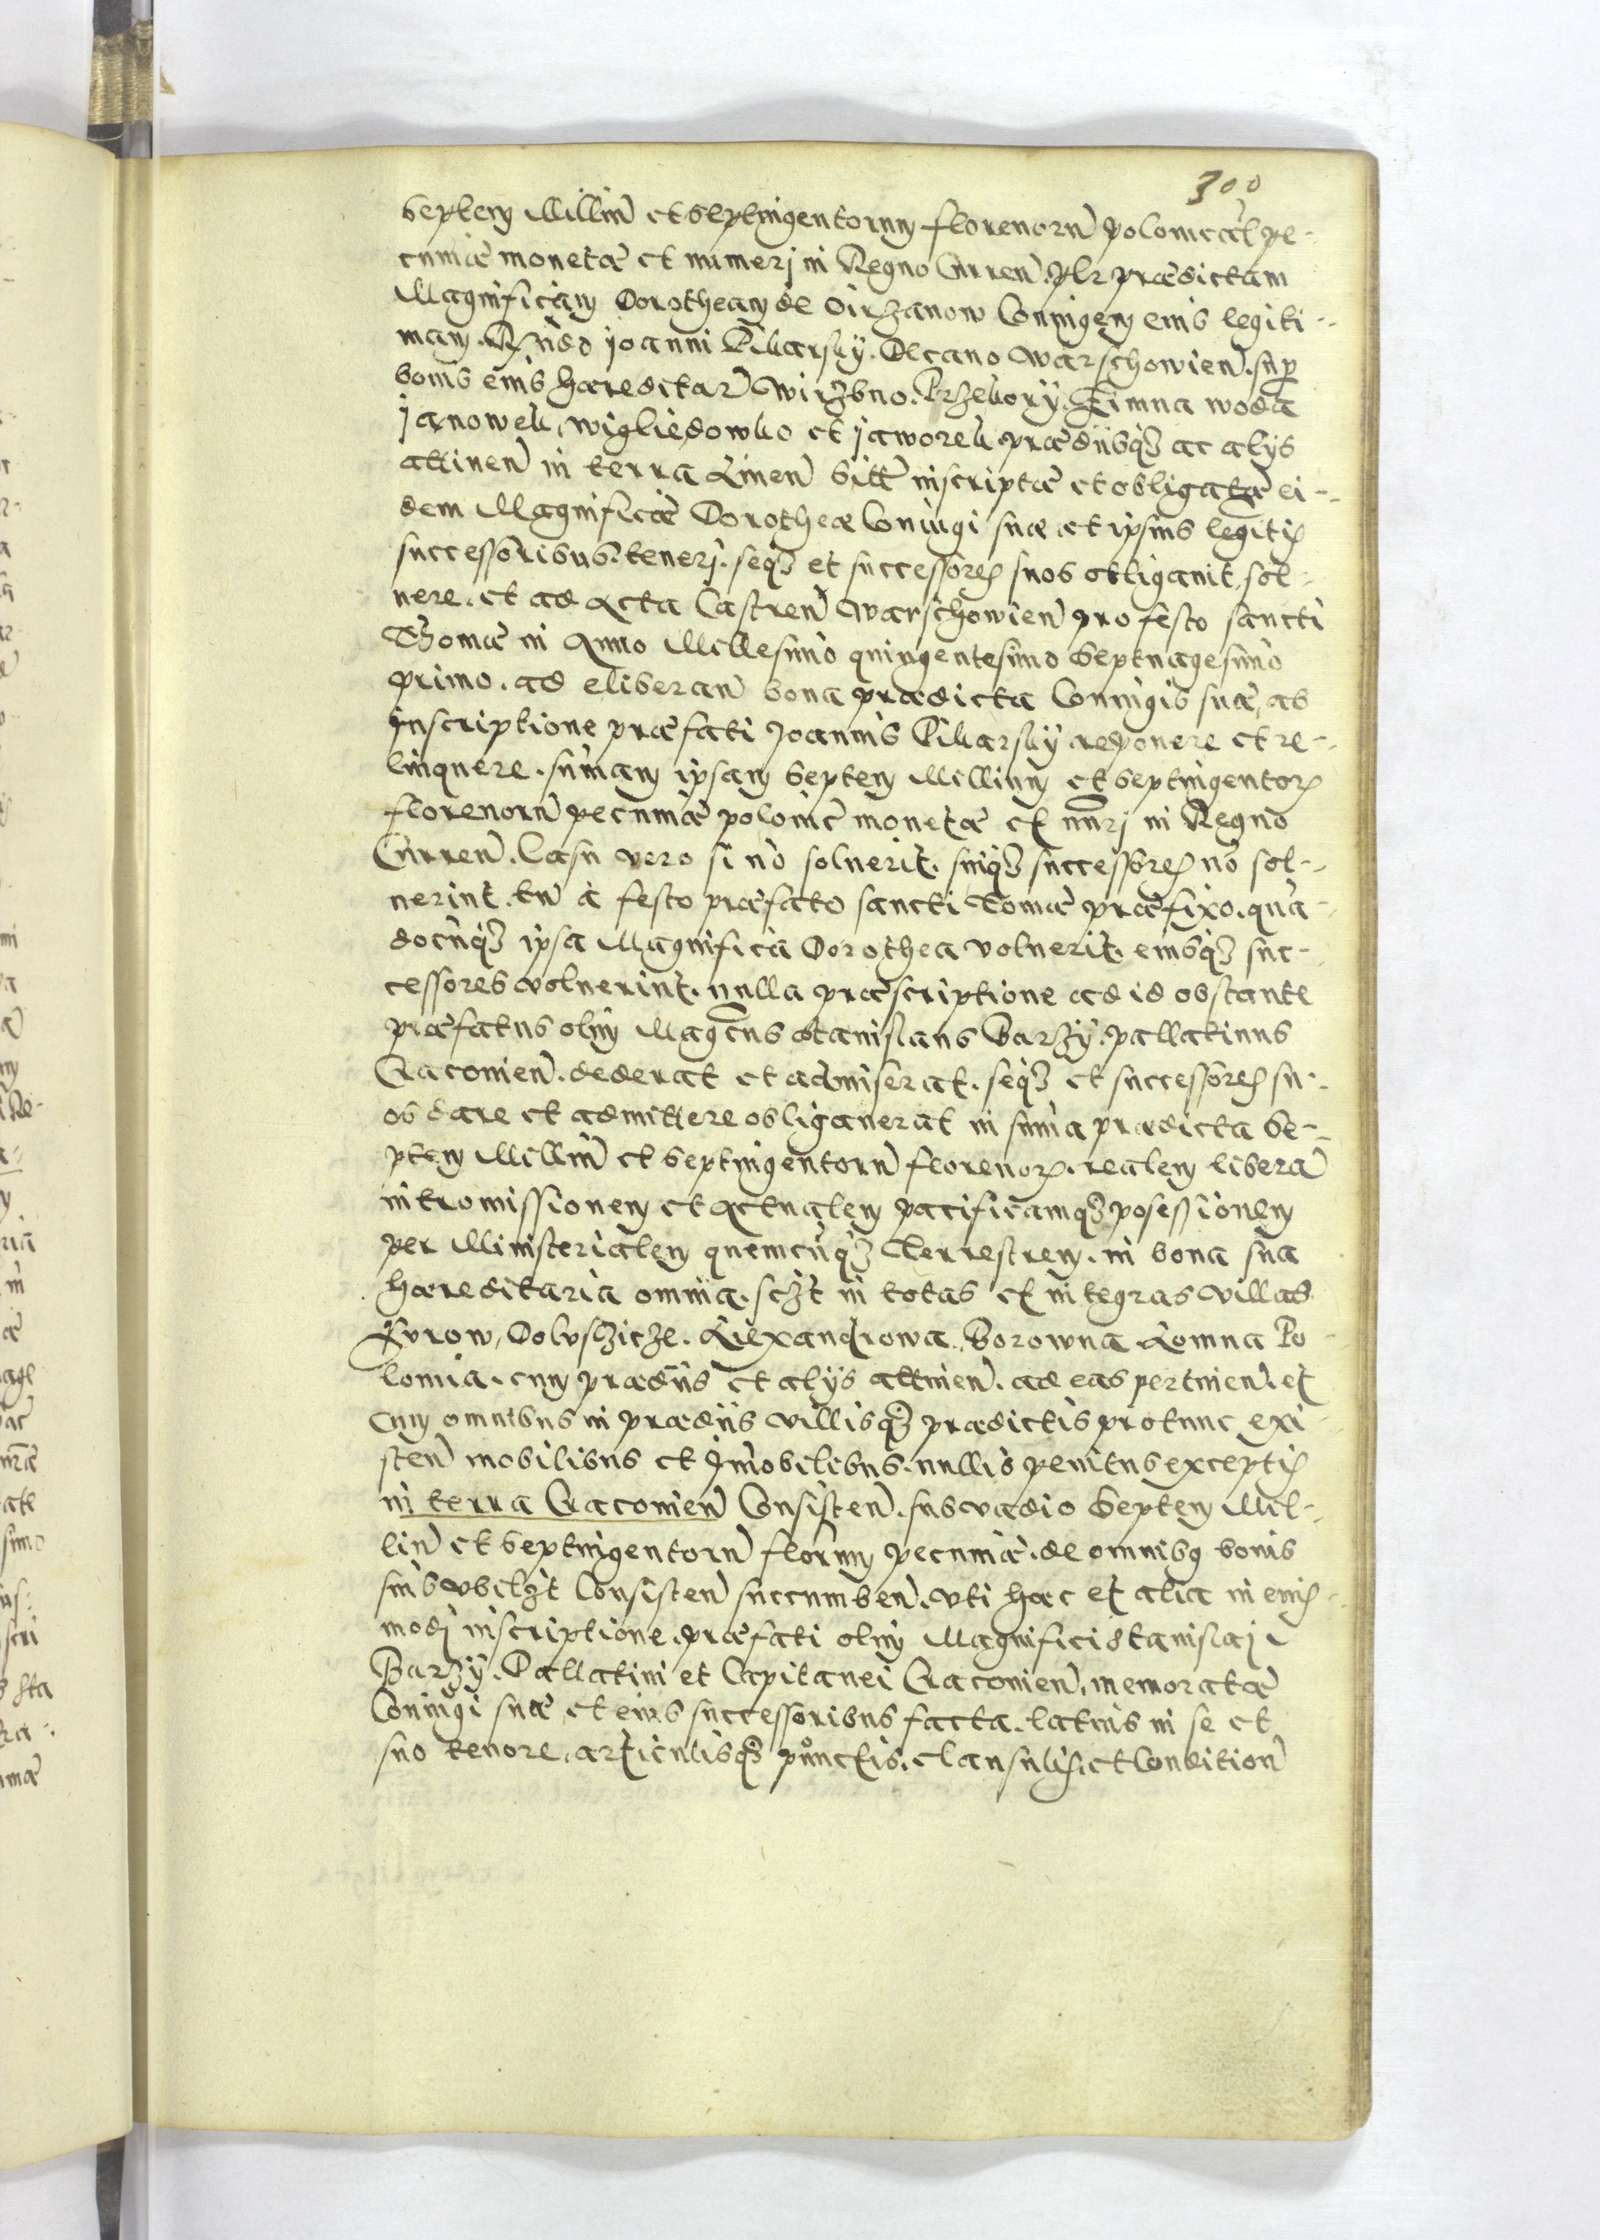 300
septem Millin̄ et septingentorum florenorn̄ polonical pe-
cuniæ monetæ et numerj in Regno Curren̄. plr prædictam
Magnificam Dorotheam de Oirzanow Coniugem eius legiti-
mam. Rndo joanni Pikarsky. Decano Warschowien̄. sup
bonis eius hæreditar̄ Wirzbno. Przekory. Zimna woda
janowek, Wigliedowko et jaworek prædiisq3 ac alijs
attinen̄ in terra Linen̄ sitt̄ inscriptæ et obligatæ ei-
dem Magnificæ Dorotheæ Coniugi suæ et ipsius legitis
successoribus. tenerj. seq3 et successores suos obligauit sol-
uere. et ad Acta Castren̄ Warschowien̄ pro festo sancti
Thomæ in Anno Millesimo quingentesimo septuagesimo
primo. ad eliberan̄ bona prædicta Coniugis suæ, ab
Inscriptione præfati Joannis Pikarsky reponere et re-
linquere. sūmam ipsam septem Millium et septingentor
florenorn̄ pecuniæ polonic̄ monetæ et nūrj in Regno
Curren̄. Casu vero si nō soluerit. suiq3 successores nō sol-
uerint. tn̄ à festo præfato sancti Tomæ præfixo. quā-
docunq3 ipsa Magnifica Dorothea voluerit. eiusq3 suc-
cessores voluerint. nulla præscriptione ad id obstante
præfatus olim Magcus Stanislaus Barzy. pallatinus
Cracouien̄. dederat et admiserat. seq3 et successores su-
os dare et admittere obligauerat in sūma prædicta se-
ptem Millin̄ et septingentorn̄ florenor. realem liberā
intromissionem et Actualem pacificamq3 posessionem
per Ministerialem quemcunq3 Terrestrem. in bona sua
hæreditaria omnia. sczt in totas et integras villas
Kyrow, Doluszicze. Alexandrowa. Borowna Lomna Po-
lomia. cum prædiis et alijs attinen̄. ad eas pertinen̄. et
Cum omnibus in prædiis villisq3 prædictis protunc exi-
sten̄ mobilibus et Imobilibus. nullis penitus exceptis
in terra Cracouien̄ Consisten̄. sub vadio septem Mil-
lin̄ et septingentorn̄ florinn pecuniæ. de omnibq bonis
suis vbilzt Consisten̄ succumben̄. vti hæc et alia in eius-
modj inscriptione. præfati olim Magnifici Stanislaj
Barzy. Pallatini et Capitanei Cracouien̄, memoratæ
Coniugi suæ et eius successoribus facta. latius in se et
suo tenore, articulisq3 punctis. clausulis. et Condition̄